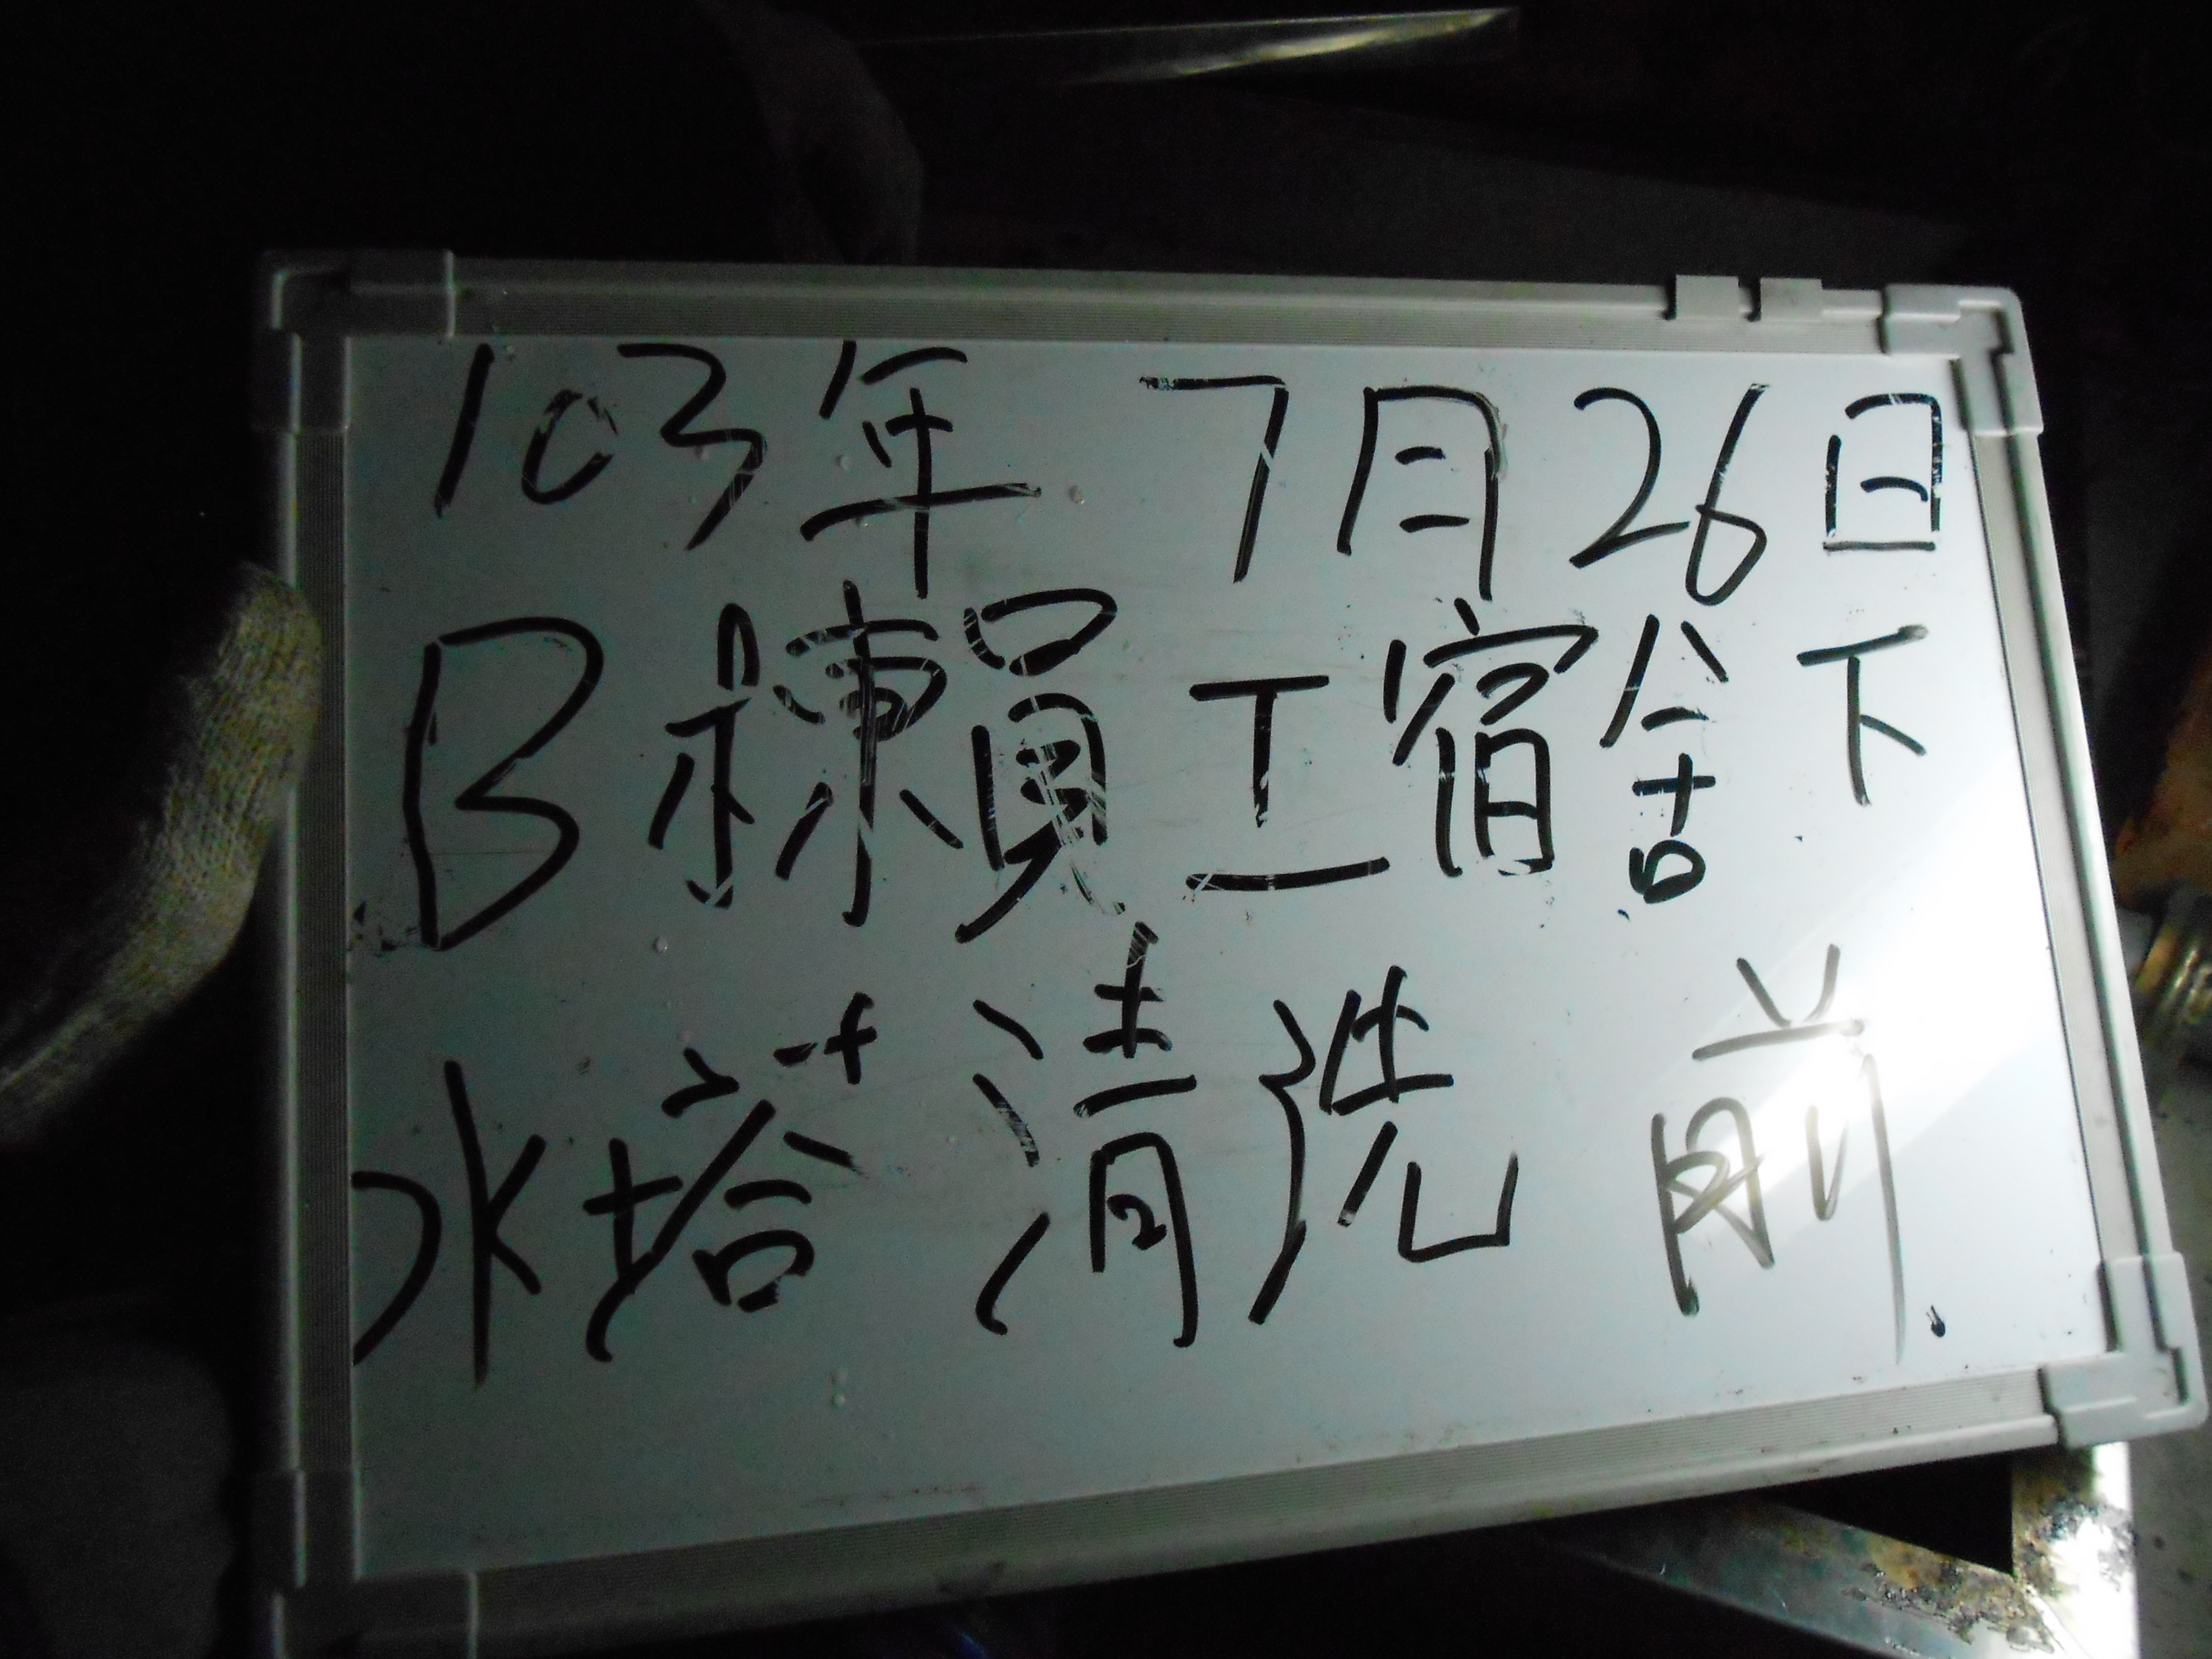 103年 7月26日
B棟員工宿舍下
水塔清洗 前